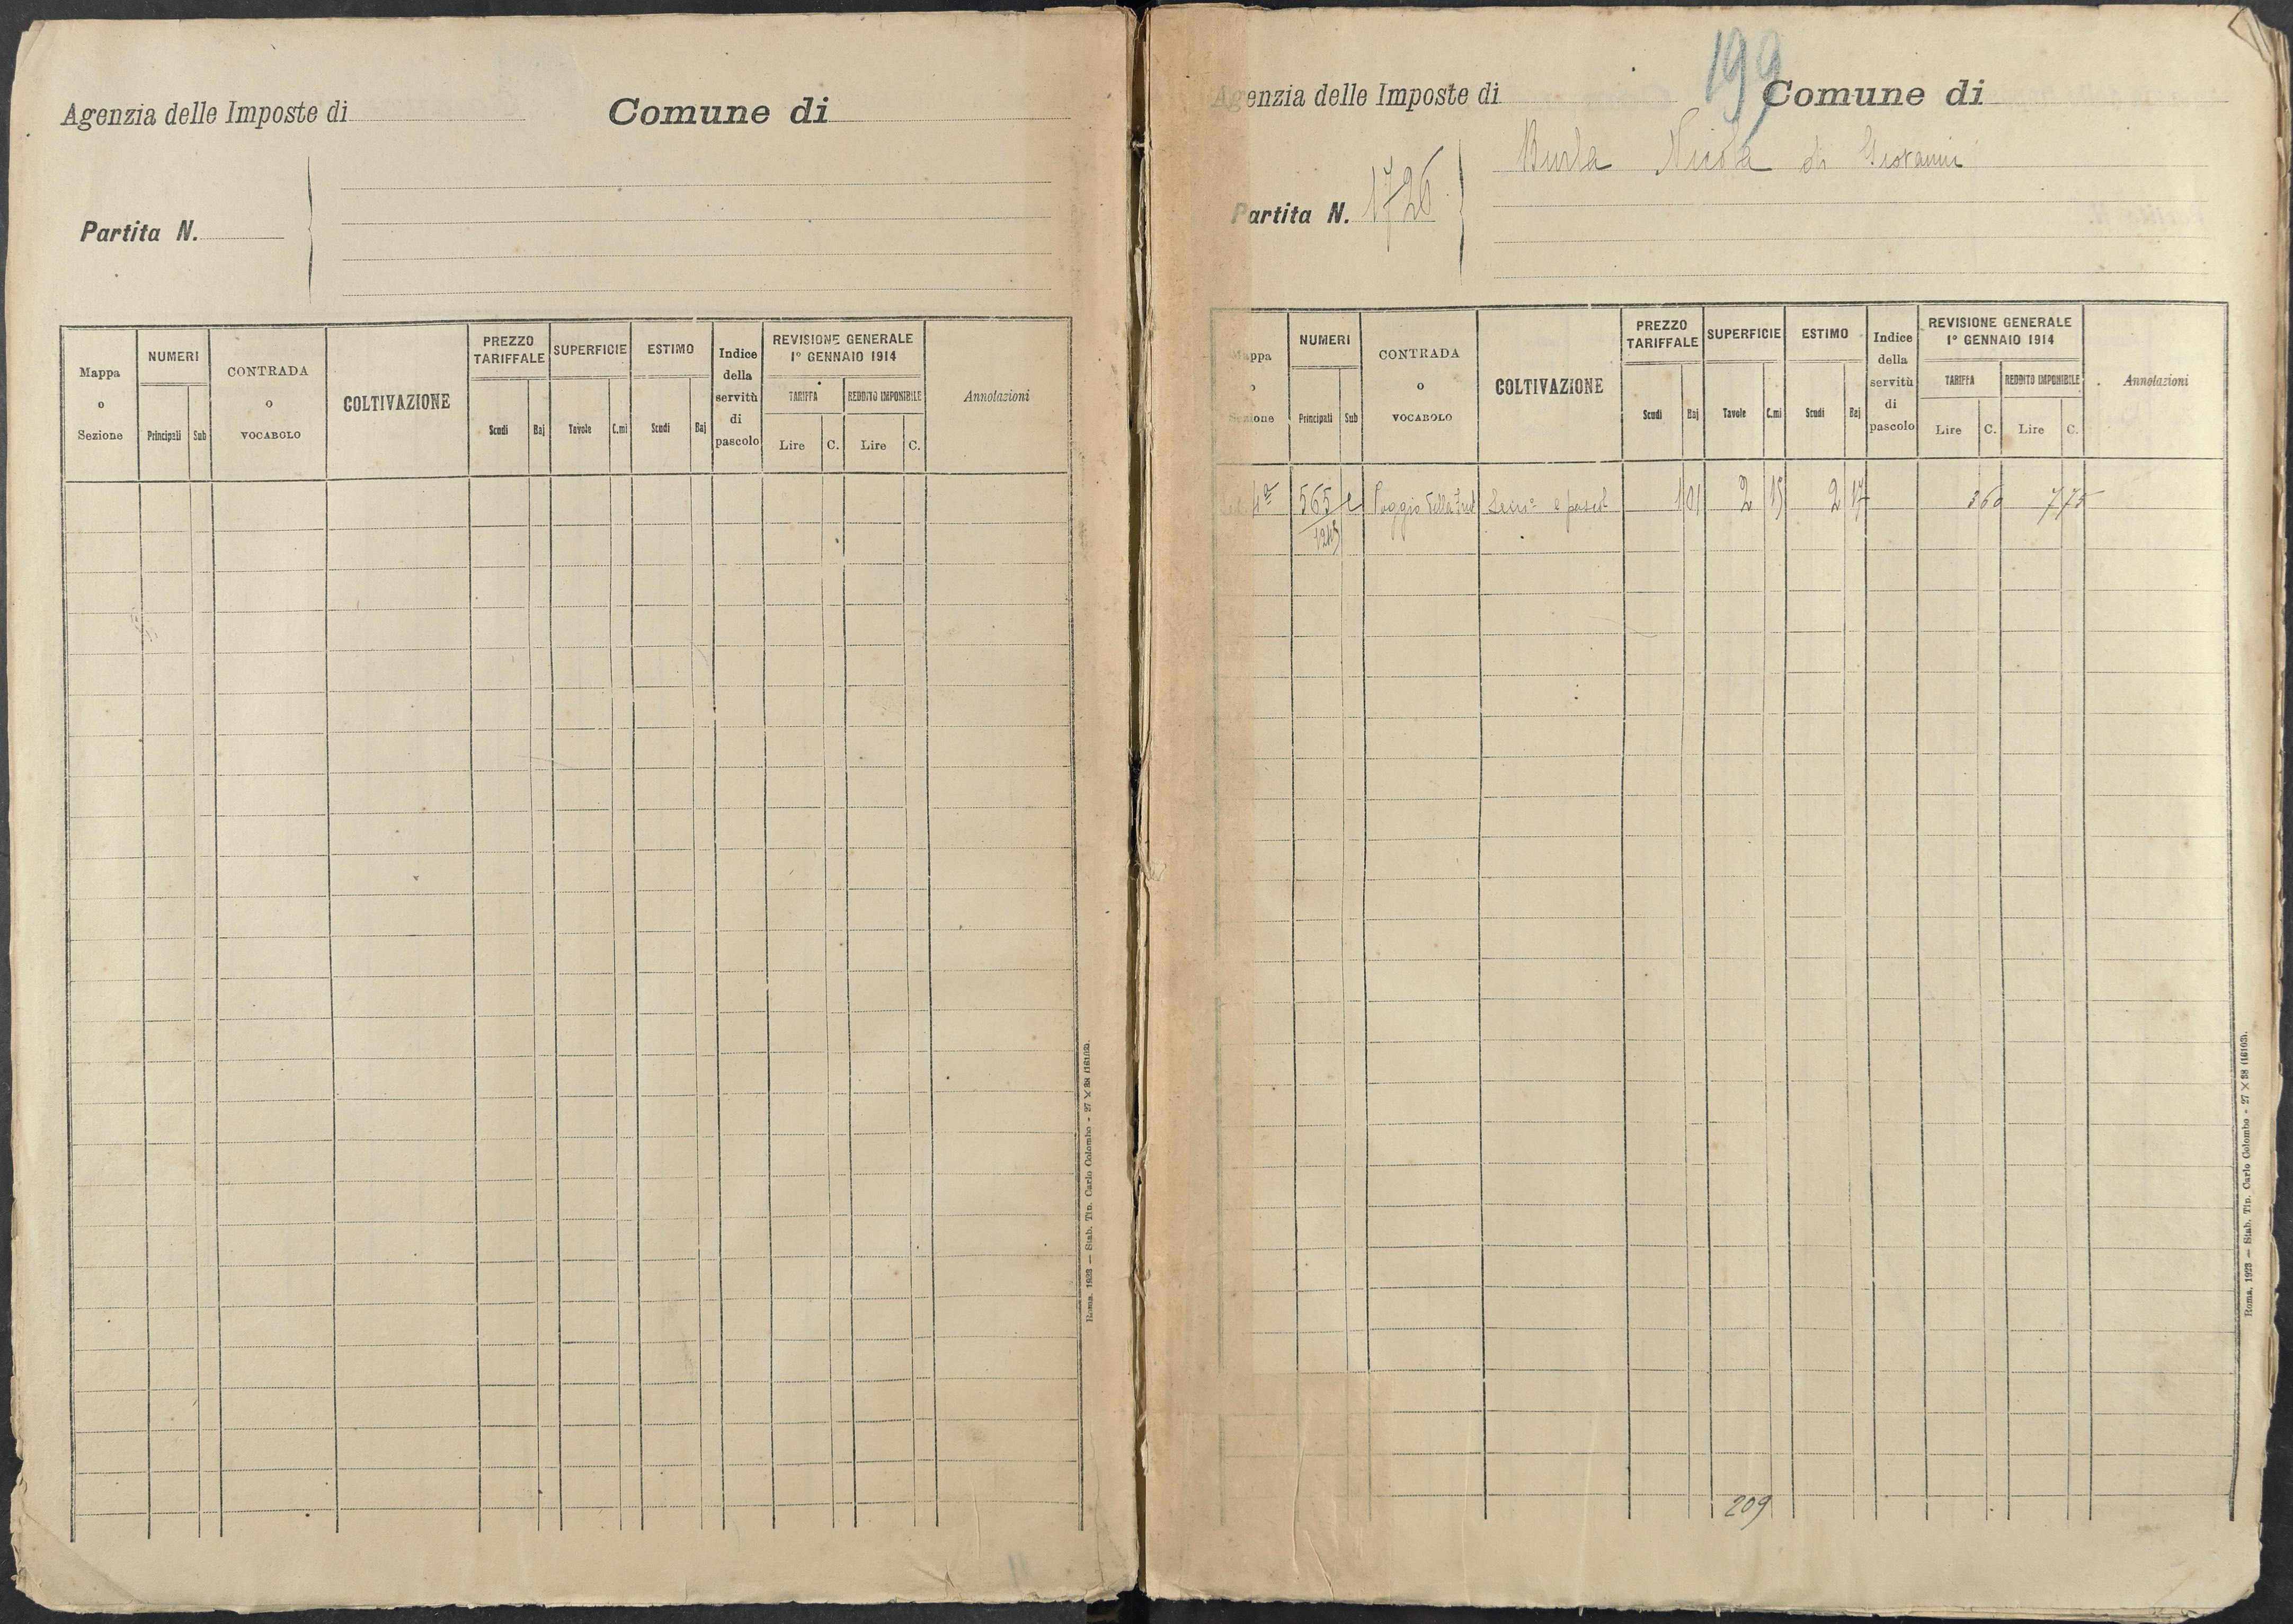 Agenzia delle Imposte di
Comune di
Partita N.
Mappa o Sezione
NUMERI
Principali Sub
CONTRADA o VOCABOLO
COLTIVAZIONE
PREZZO TARIFFALE
Scudi Baj
SUPERFICIE
Tavole C.mi
ESTIMO
Scudi Baj
Indice della servitù di pascolo
REVISIONE GENERALE
1° GENNAIO 1914
TARIFFA REDDITO IMPONIBILE
Lire C. Lire C.
Annotazioni
Roma, 1923 — Stab. Tip. Carlo Colombo - 27 × 38 (16163).
199
Agenzia delle Imposte di
Comune di
Partita N. 1726
Burla Nicola di Giovanni
Mappa o Sezione
NUMERI
Principali Sub
CONTRADA o VOCABOLO
COLTIVAZIONE
PREZZO TARIFFALE
Scudi Baj
SUPERFICIE
Tavole C.mi
ESTIMO
Scudi Baj
Indice della servitù di pascolo
REVISIONE GENERALE
1° GENNAIO 1914
TARIFFA REDDITO IMPONIBILE
Lire C. Lire C.
Annotazioni
4ª 565 Poggio della e 1 01 2 15 2 17 360 775
1243
209
Roma, 1923 — Stab. Tip. Carlo Colombo - 27 × 38 (16163).